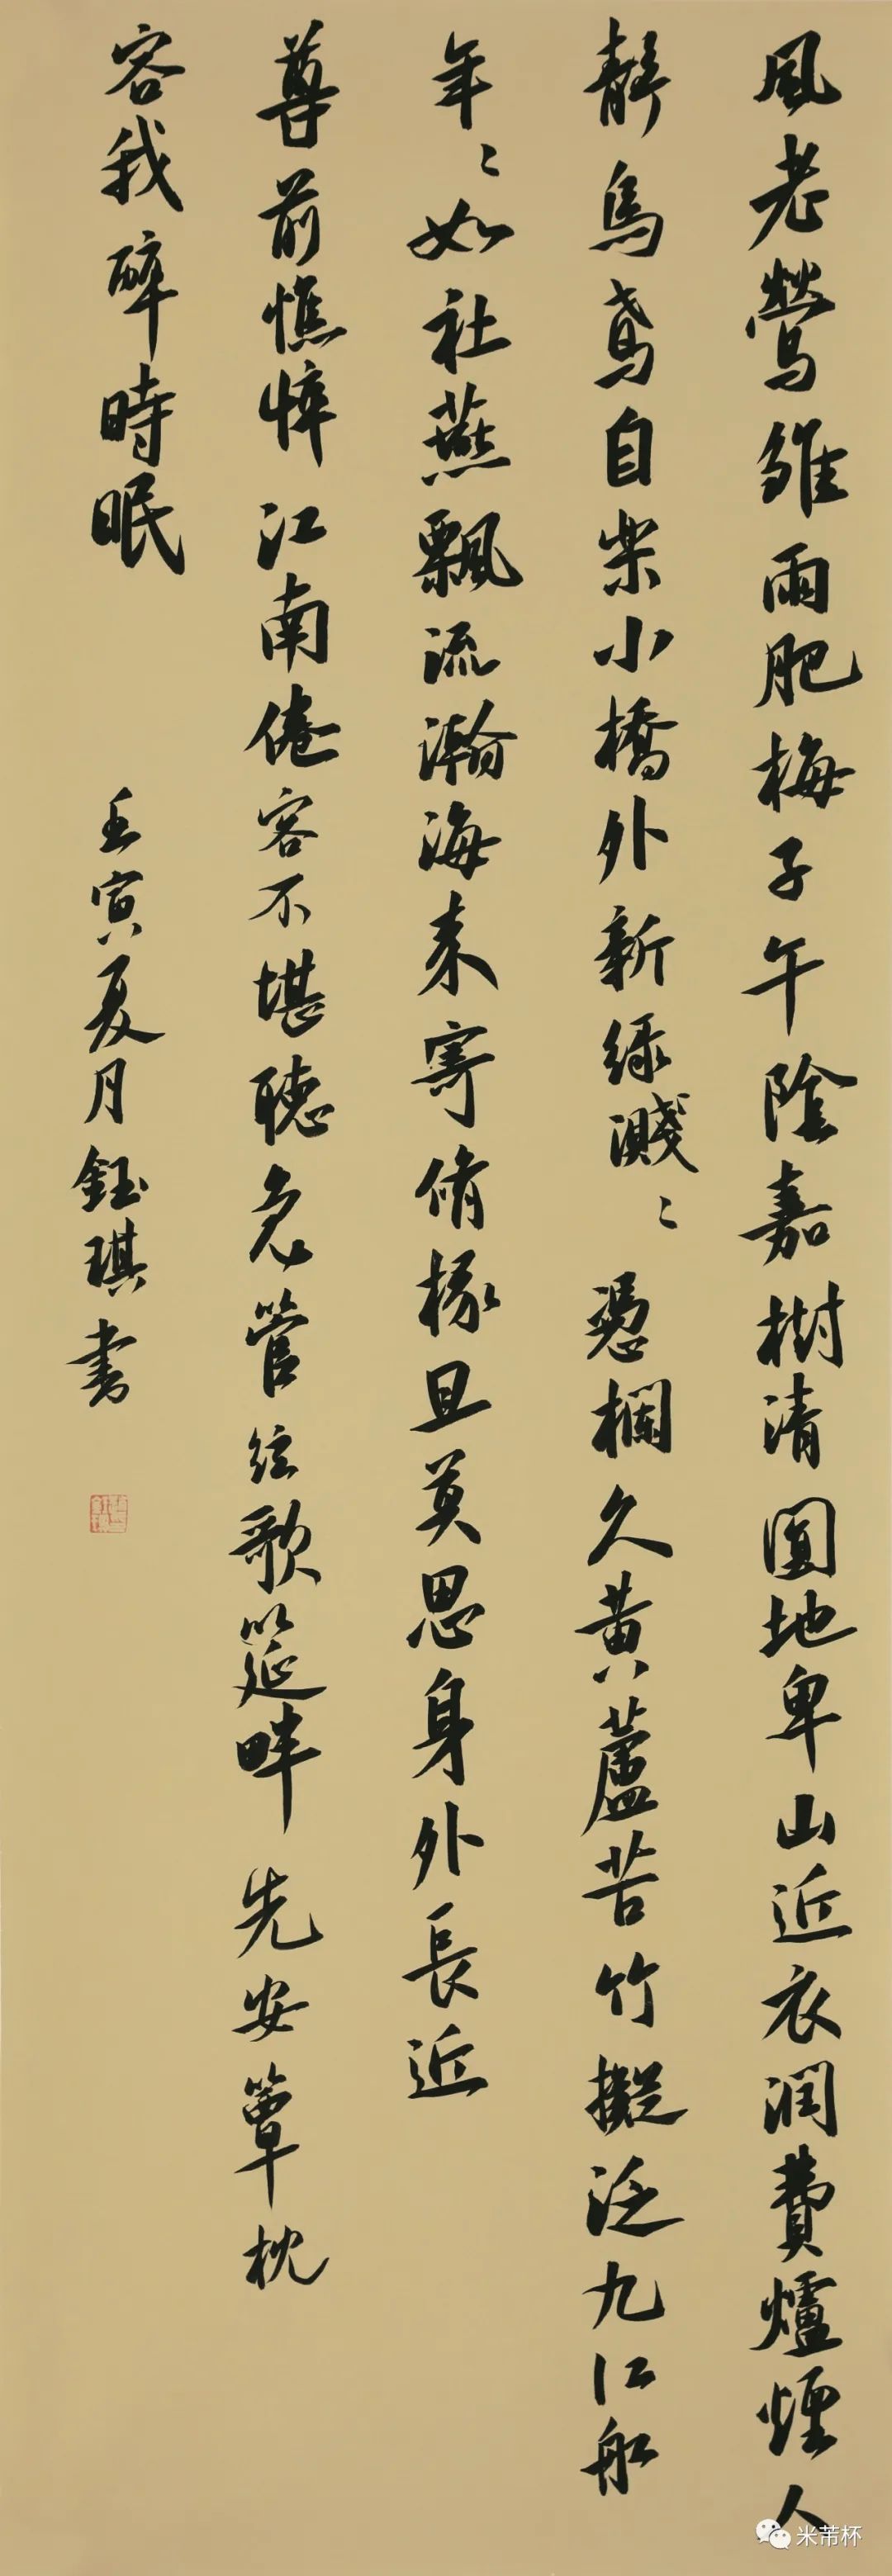 風老鶯雛雨肥梅子午陰嘉樹清圓地卑山近衣潤費爐煙人
靜烏鳶自樂小橋外新綠濺〻憑欄久黃蘆苦竹擬泛九江船
年〻如社燕飄流瀚海來寄脩椽且莫思身外長近
尊前憔悴江南倦客不堪聽急管絃歌筵畔先安簟枕
容我醉時眠
壬寅夏月鈺琪書
米芾杯